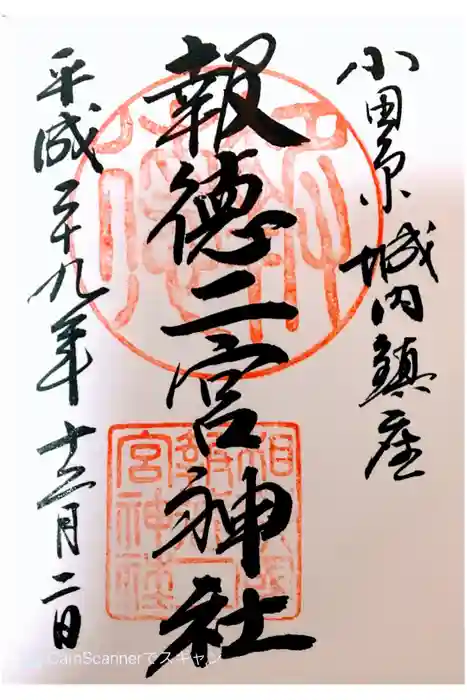 小田原城内鎮座
報徳二宮神社
平成二十九年十二月二日
CamScannerでスキャン